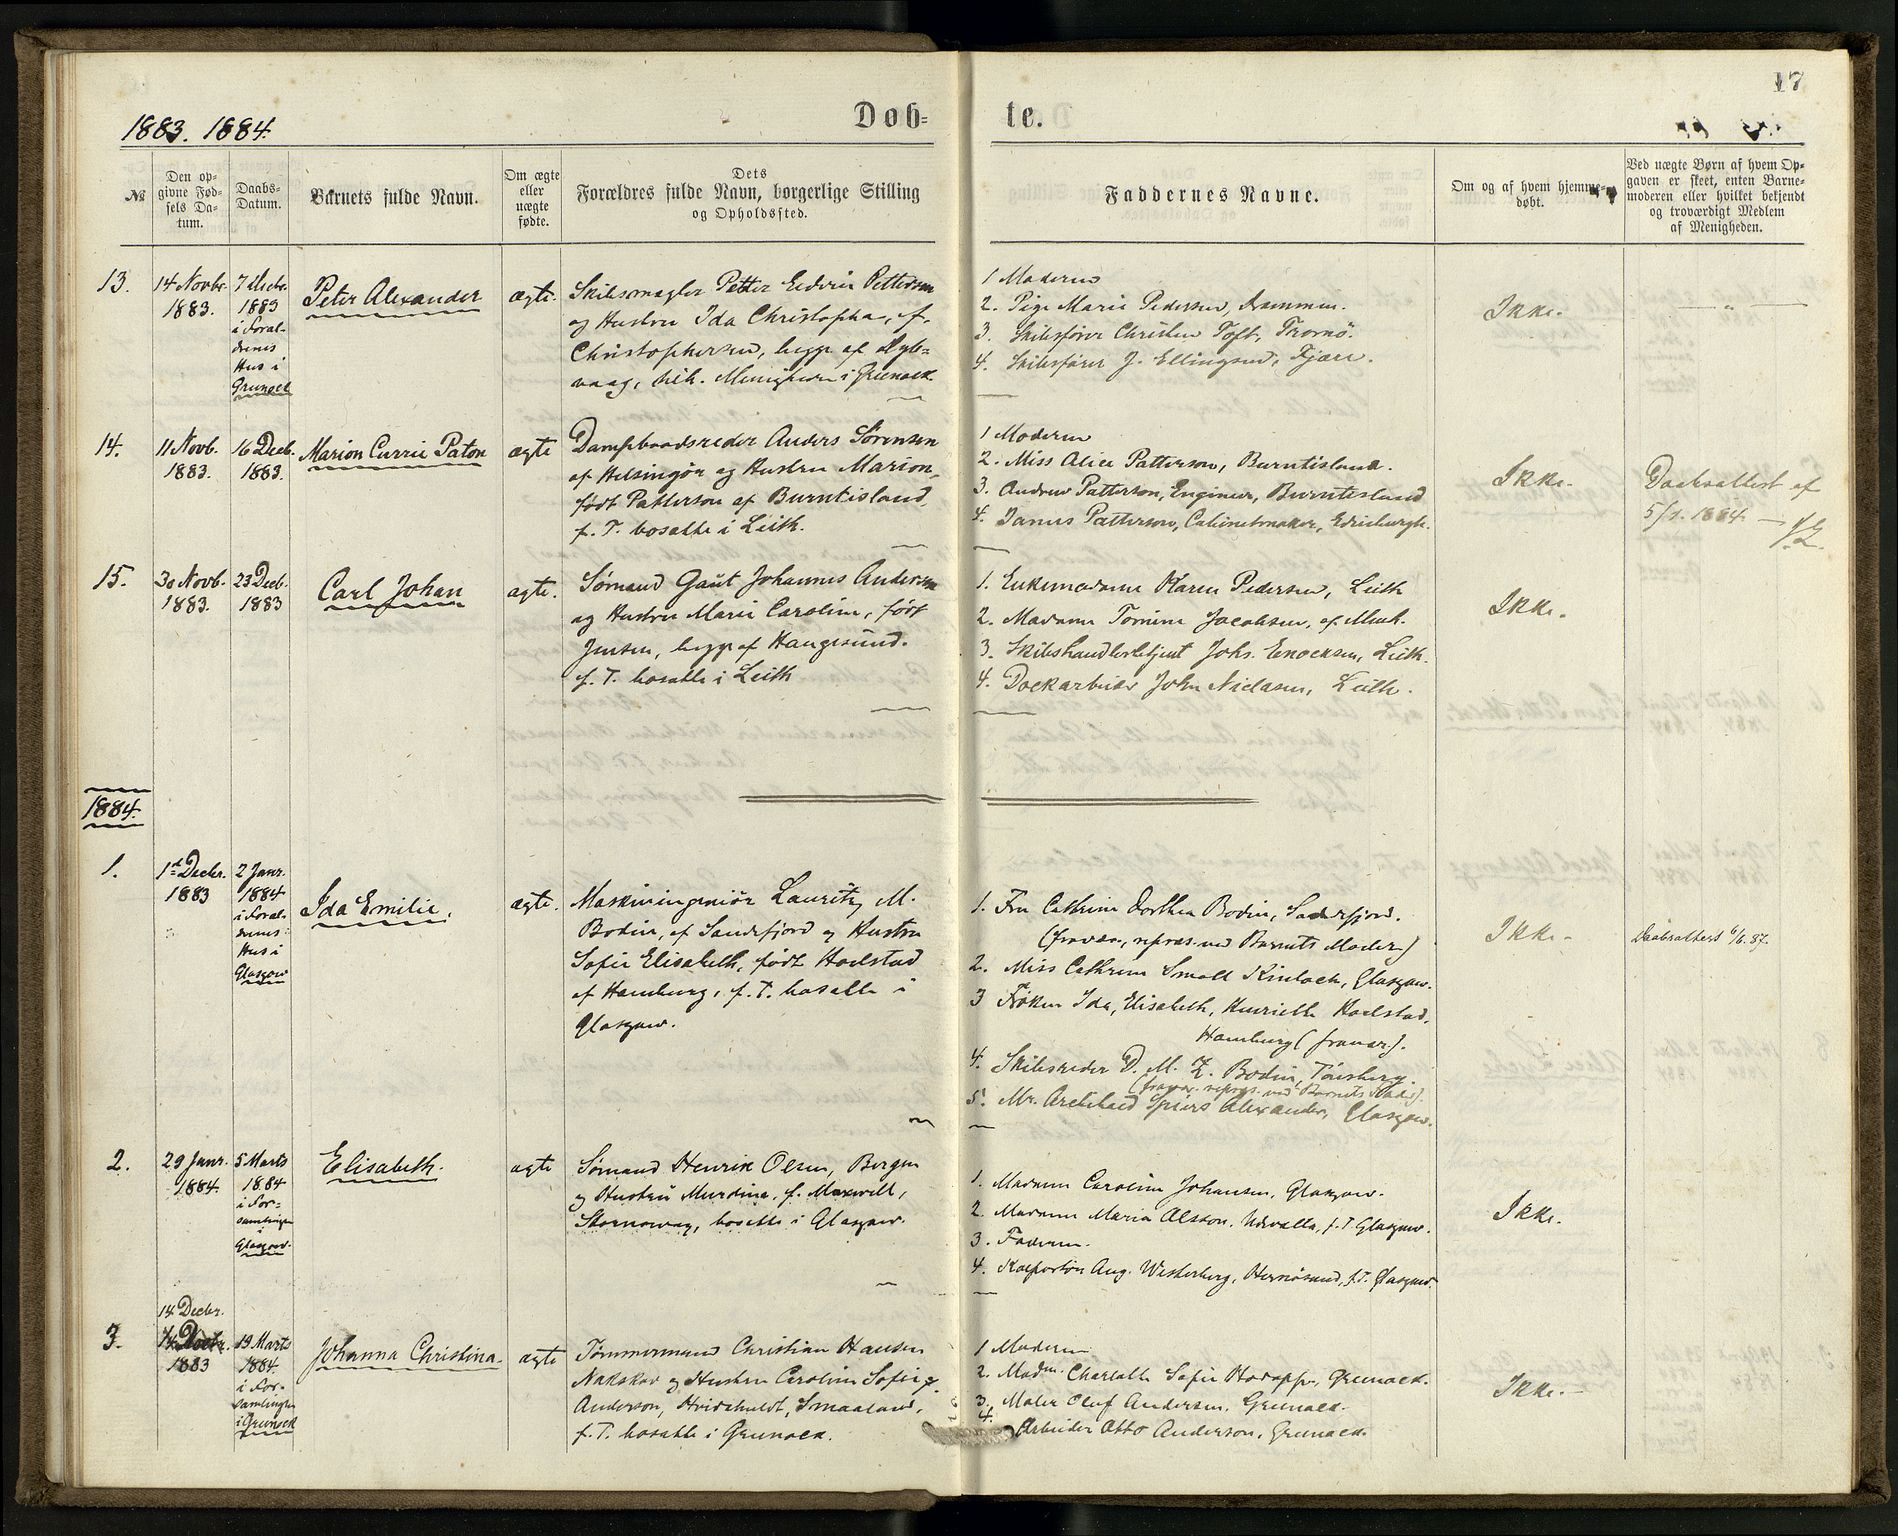 17
1883. 1884.
Døb=
te.
№
Den op-
givne Fød-
sels Da-
tum.
Daabs-
Datum.
Barnets fulde Navn.
Om ægte
eller
uægte
fødte.
Dets
Forældres fulde Navn, borgerlige Stilling
og Opholdssted.
Faddernes Navne.
Om og af hvem hjemme-
døbt.
Ved uægte Børn af hvem Op-
gaven er skeet, enten Barne-
moderen eller hvilket bekjendt
og troværdigt Medlem
af Menigheden.
13.
14 Novbr.
1883.
7 Decbr.
1883
i Foræl-
drenes
Hus i
Grenock
Peter Alexander
ægte.
Skibsmægler Petter Edvin Pettersen
og Hustru Ida Christopha, f.
Christophersen, begge af
vaag, Menigheden i Grenock.
1 Moderen
2. Pige Marie Pedersen, Drammen.
3. Skibsfører Christen Toft, Tromø.
4. Skibsfører J. Ellingsen, Fjære.
Ikke.
"
14.
11 Novb.
1883.
16 Decb.
1883.
Marion Currie Paton
ægte
Dampbaadsreder Anders Sørensen
af Helsingør og Hustru Marion,
født Patterson af Burntisland,
f. T. bosatte i Leith.
1 Moderen
2. Miss Alice Patterson, Burntisland.
3. Andrew Patterson, Engineer, Burntisland
4. James Patterson, Cabinetmaker, Edinburgh.
Ikke.
Daabsattest af
5/1. 1884
15.
30 Novb.
1883.
23 Decb.
1883
Carl Johan
ægte.
Sømand Gaut Johannes Andersen
og Hustru Marie Caroline, født
Jensen, begge af Haugesund.
f. T. bosatte i Leith
1. Enkemadame Karen Pedersen, Leith
2. Madame Tomine Jacobsen, af
3. Skibshandlerbetjent Johs. Enocksen, Leith.
4. Dockarbeider John Niclasen, Leith.
Ikke.
1884.
1.
1ste Decbr.
1883
2 Janr.
1884
i Foræl-
drenes
Hus i
Glasgow
Ida Emilie.
ægte.
Maskiningeniør Lauritz M.
Bodin, af Sandefjord og Hustru
Sofie Elisabeth, født Hoelstad
af Hamburg, f. T. bosatte i
Glasgow.
1. Fru Cathrine Dorthea Bodin, Sandefjord.
(fravær., repræs. ved Barnets Moder)
2. Miss Cathrine Small Kinloch, Glasgow.
3 Frøken Ida, Elisabeth, Henriette Hoelstad,
Hamburg (fravær.).
4. Skibsreder D. M. Z. Bodin, Tønsberg.
(fravær. repræs. ved Barnets Fader).
5. Mr. Archibald Spiers Alexander, Glasgow.
Ikke.
Daabsattest 6/6. 87.
2.
29 Janr.
1884.
5 Marts
1884
i For-
samlingen
i
Glasgow.
Elisabeth.
ægte
Sømand Henrik Olsen, Bergen
og Hustru Murdina, f. Maxwell,
Stornoway, bosatte i Glasgow.
1. Madame Caroline Johansen, Glasgow.
2. Madame Maria Olsson, Udevalla, f. T Glasgow.
3. Faderen.
4. Kolportør Aug. Westerberg, Hernøsand, f. T. Glasgow.
Ikke.
3.
14 Decbr.
1883
19 Marts
1884.
i For-
samlingen
i Grenock
Johanna Christina.
ægte
Tømmermand Christian Hansen
Nakskov og Hustru Caroline Sofie f.
Anderson, Hvidehuldt, Smaaland,
f. T. bosatte i Grenock.
1 Moderen
2. Madm. Charlotte Sofie Grenock.
3. Maler Olof Andersen, Grenock.
4. Arbeider Otto Anderson, Grenock.
Ikke.